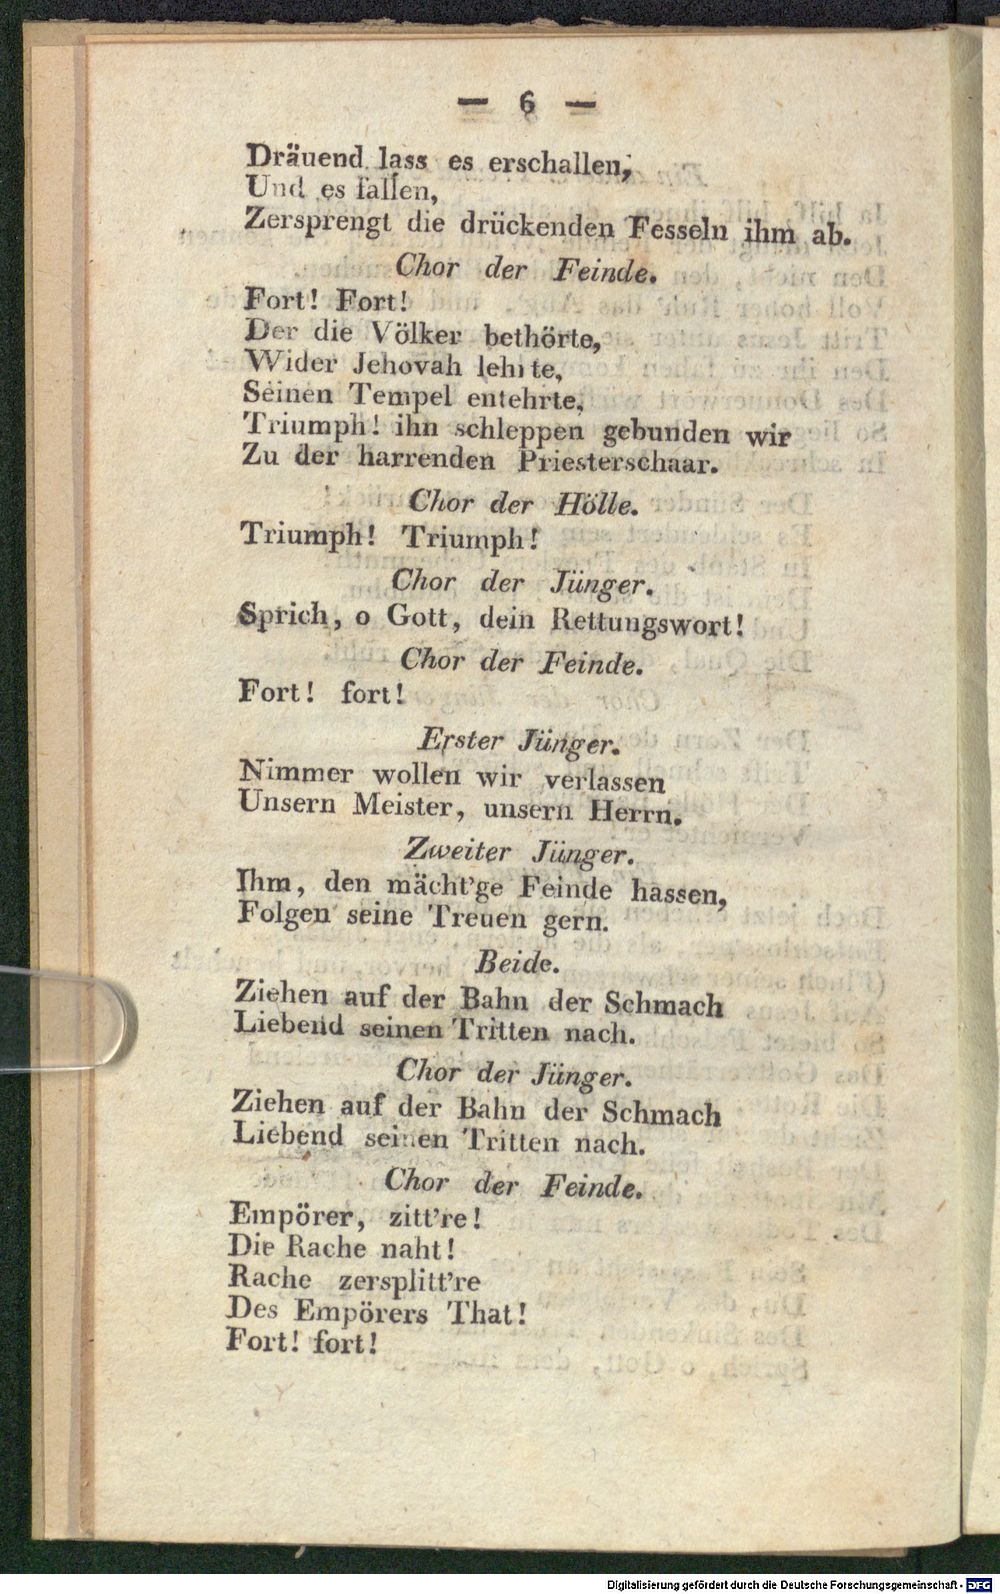 — 6 —
Dräuend lass es erschallen,
Und es fallen,
Zersprengt die drückenden Fesseln ihm ab.
Chor der Feinde.
Fort! Fort!
Der die Völker bethörte,
Wider Jehovah lehrte,
Seinen Tempel entehrte,
Triumph! ihn schleppen gebunden wir
Zu der harrenden Priesterschaar.
Chor der Hölle.
Triumph! Triumph!
Chor der Jünger.
Sprich, o Gott, dein Rettungswort!
Chor der Feinde.
Fort! fort!
Erster Jünger.
Nimmer wollen wir verlassen
Unsern Meister, unsern Herrn.
Zweiter Jünger.
Ihm, den mächt'ge Feinde hassen,
Folgen seine Treuen gern.
Beide.
Ziehen auf der Bahn der Schmach
Liebend seinen Tritten nach.
Chor der Jünger.
Ziehen auf der Bahn der Schmach
Liebend seinen Tritten nach.
Chor der Feinde.
Empörer, zitt're!
Die Rache naht!
Rache zersplitt're
Des Empörers That!
Fort! fort!
Digitalisierung gefördert durch die Deutsche Forschungsgemeinschaft - DFG